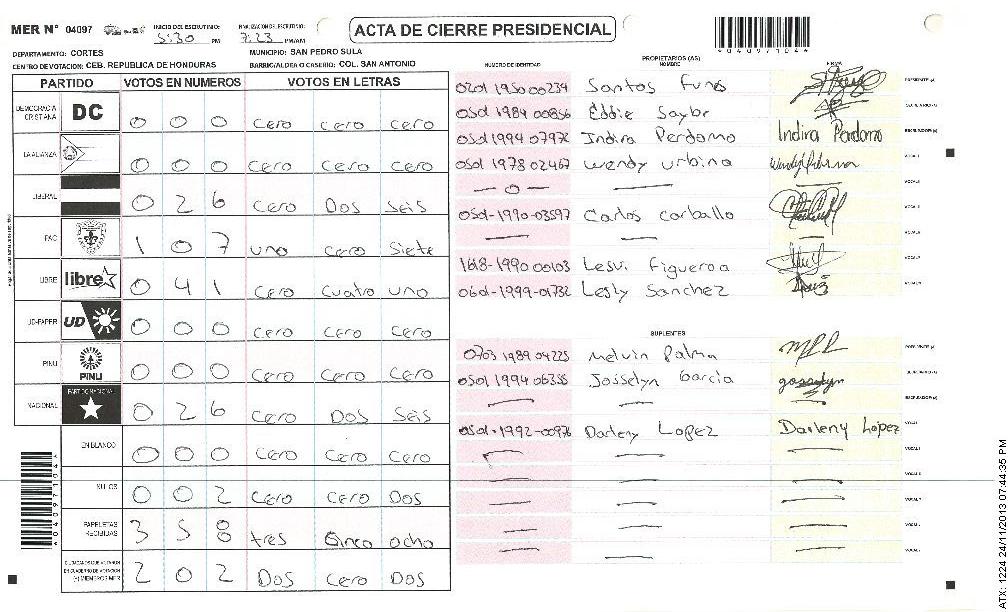 MER N° 04097 INICIO DEL ESCRUTINIO: 5:30 PM FINALIZACION DEL ESCRUTINIO: 7:23 PM/AM
ACTA DE CIERRE PRESIDENCIAL
*040971044*
DEPARTAMENTO: CORTES MUNICIPIO: SAN PEDRO SULA
CENTRO DE VOTACION: CEB. REPUBLICA DE HONDURAS BARRIO/ALDEA O CASERIO: COL. SAN ANTONIO
PARTIDO VOTOS EN NUMEROS VOTOS EN LETRAS
DEMOCRACIA CRISTIANA DC 0 0 0 Cero Cero Cero
LA ALIANZA 0 0 0 Cero Cero Cero
LIBERAL 0 2 6 Cero Dos Seis
PAC 1 0 7 uno Cero Siete
LIBRE libre 0 4 1 Cero Cuatro uno
UD-FAPER UD 0 0 0 Cero Cero Cero
PINU PINU 0 0 0 Cero Cero Cero
NACIONAL PARTIDO NACIONAL 0 2 6 Cero Dos Seis
EN BLANCO 0 0 0 Cero Cero Cero
NULOS 0 0 2 Cero Cero Dos
PAPELETAS RECIBIDAS 3 5 8 tres Cinco ocho
CIUDADANOS QUE VOTARON EN CUADERNO DE VOTACION (+) MIEMBROS MER 2 0 2 Dos Cero Dos
*040971044*
PROPIETARIOS (AS)
NUMERO DE IDENTIDAD NOMBRE FIRMA
0201 1950 00234 Santos Funes PRESIDENTE (A)
0501 1984 00856 Eddie Saybr SECRETARIO (A)
0501 1994 07976 Indira Perdomo Indira Perdomo ESCRUTADOR (A)
0501 1978 02467 Wendy Urbina VOCAL 1
— 0 —
0501-1990-03597 Carlos Carballo
1618-1990 00103 Lesvi Figueroa
0601-1999-01732 Lesly Sanchez
SUPLENTES
0703 1989 04225 Melvin Palma PRESIDENTE (A)
0501 1994 06355 Josselyn Garcia SECRETARIO (A)
ESCRUTADOR (A)
0501-1992-00976 Darleny Lopez Darleny Lopez VOCAL 1
ATX: 1224 24/11/2013 07:44:35 PM